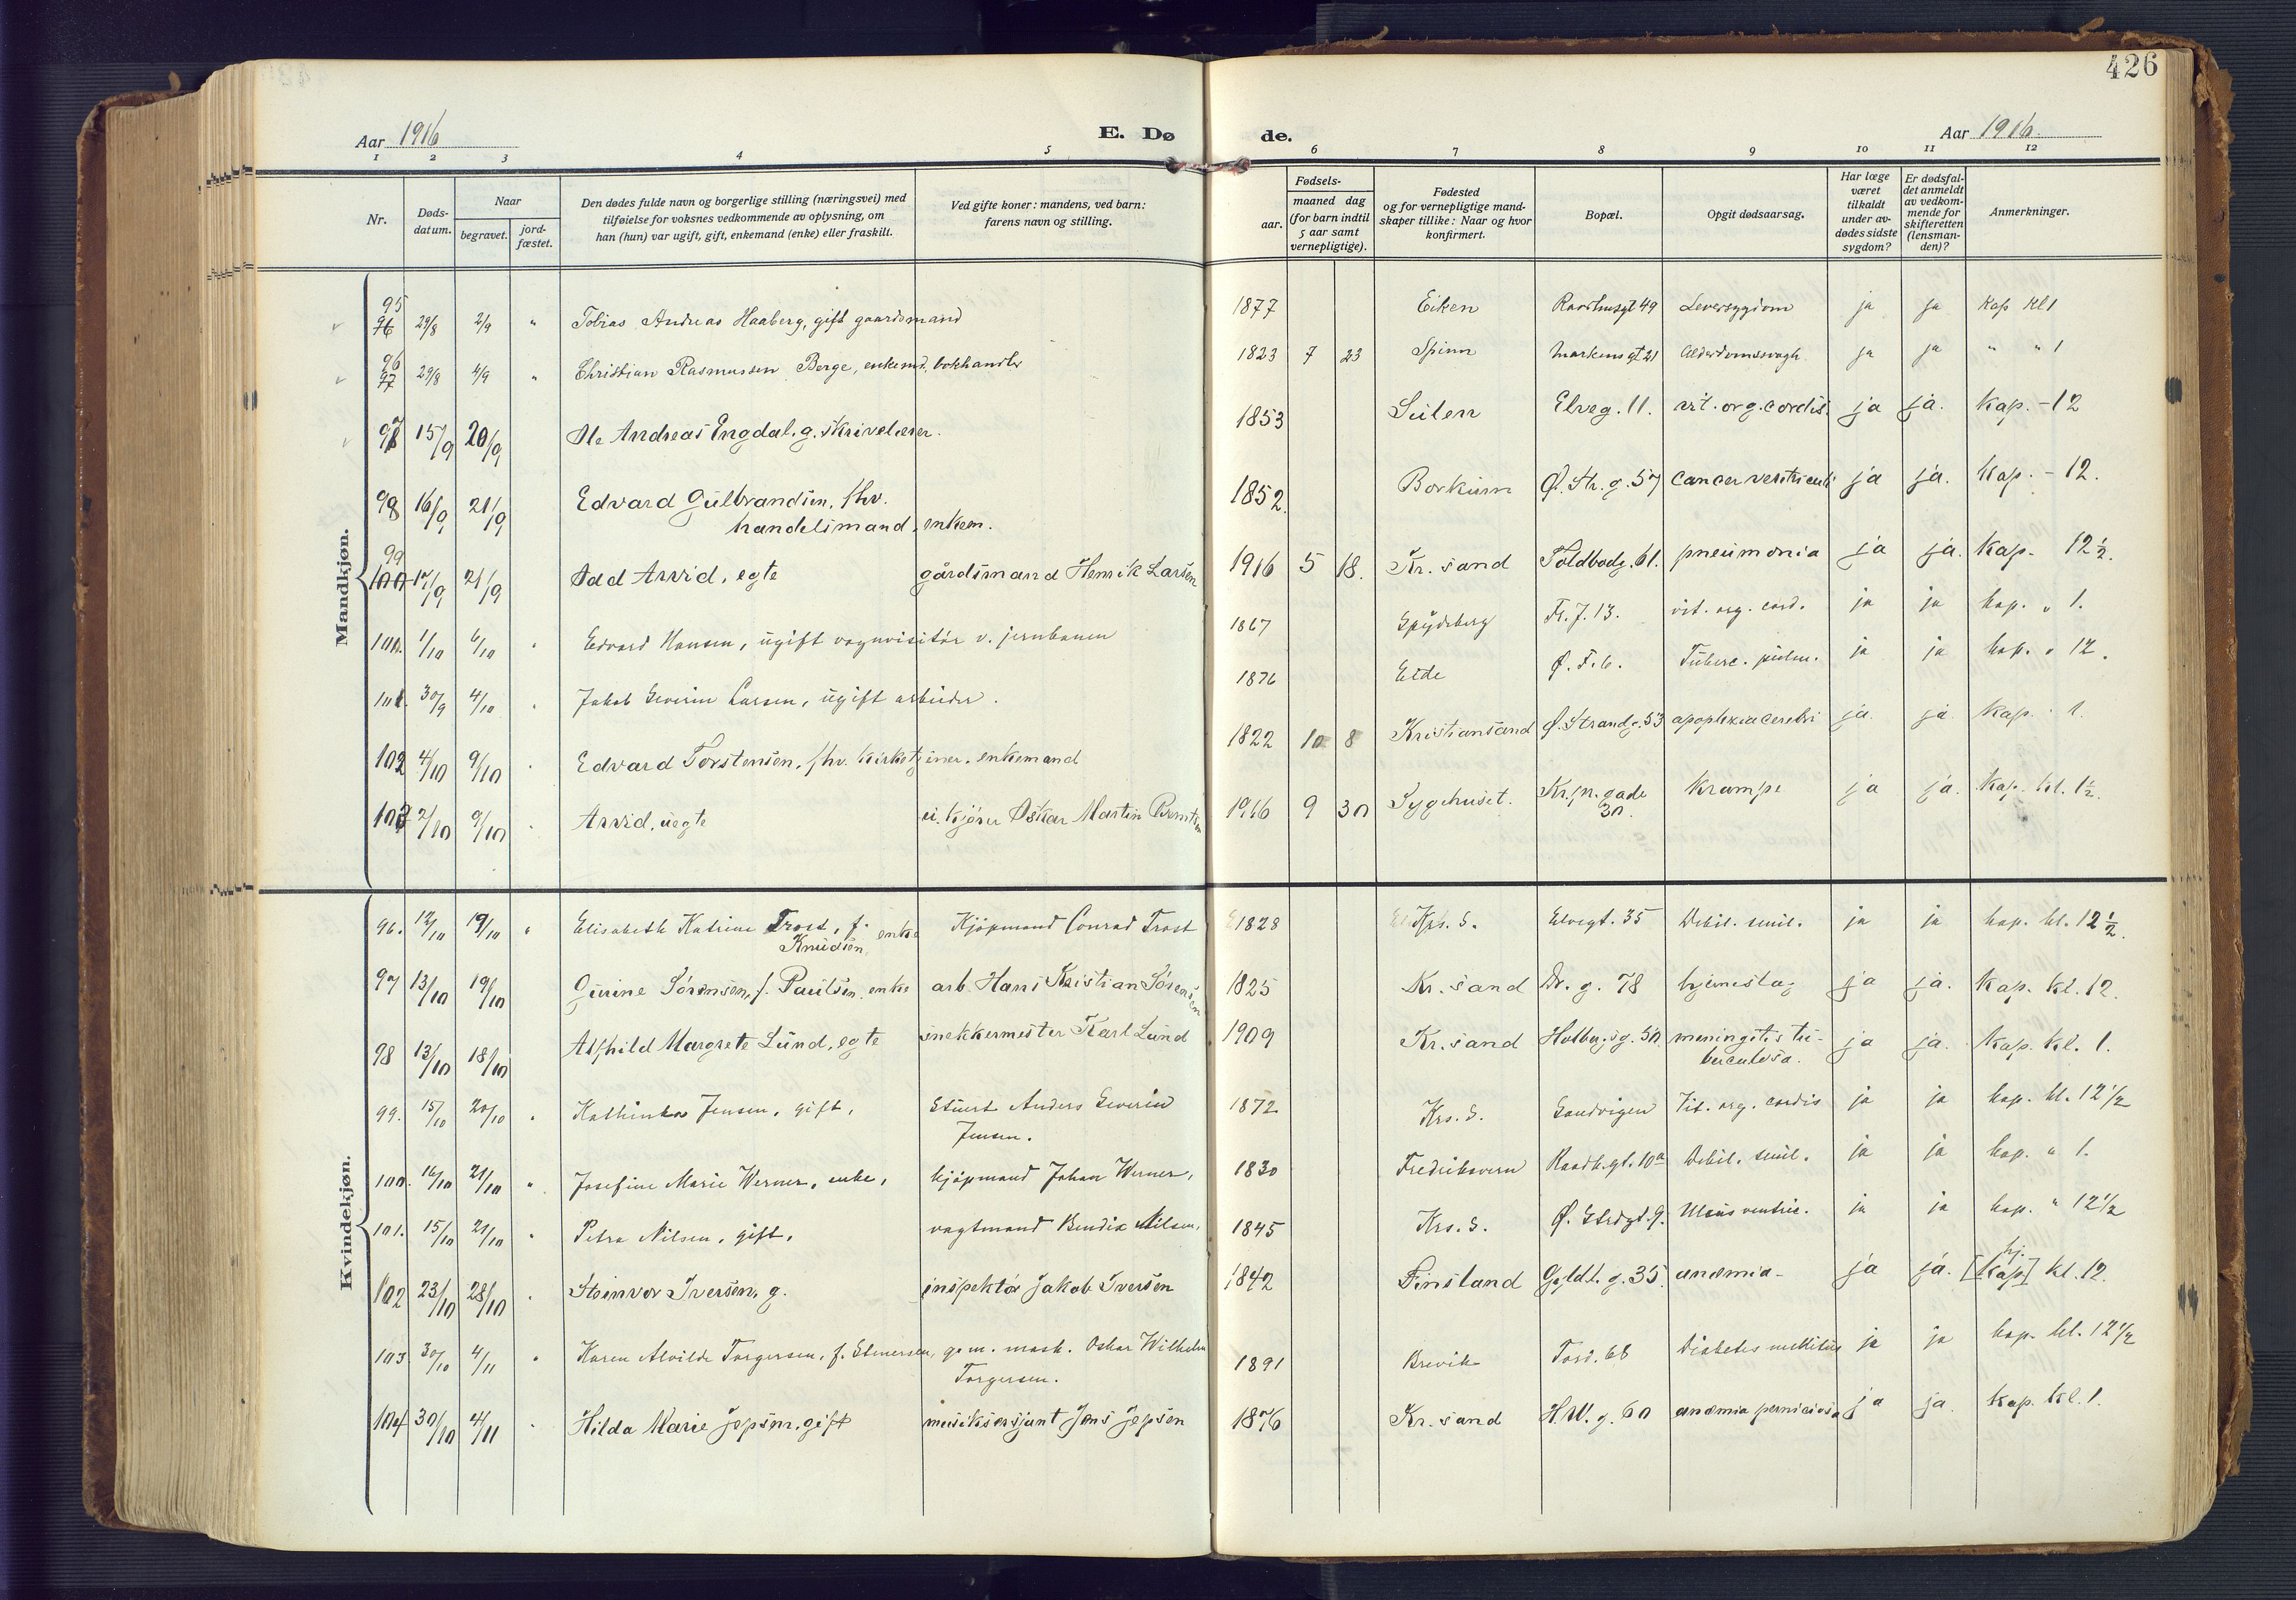 426
Aar 1916 E. Dø de. Aar 1916.
1 2 3 4 5 6 7 8 9 10 11 12
Nr.
Døds-
datum.
Naar
begravet.
jord-
fæstet.
Den dødes fulde navn og borgerlige stilling (næringsvei) med
tilføielse for voksnes vedkommende av oplysning, om
han (hun) var ugift, gift, enkemand (enke) eller fraskilt.
Ved gifte koner: mandens, ved barn:
farens navn og stilling.
Fødsels-
aar.
maaned dag
(for barn indtil
5 aar samt
vernepligtige).
Fødested
og for vernepligtige mand-
skaper tillike: Naar og hvor
konfirmert.
Bopæl.
Opgit dødsaarsag.
Har læge
været
tilkaldt
under av-
dødes sidste
sygdom?
Er dødsfal-
det anmeldt
av vedkom-
mende for
skifteretten
(lensman-
den)?
Anmerkninger.
Mandkjøn.
95 29/8 2/9 " Tobias Andreas Haaberg, gift gaardsmand 1877 Eiken Raadhusgt 49 Leversygdom ja ja Kap kl 1
96 29/8 4/9 " Christian Rasmussen Berge, enkemd. bokhandler 1823 7 23 Spinn Markensgt 21 Alderdomssvagh. ja ja " " 1
97 15/9 20/9 Ole Andreas Engdal. g. skrivelærer. 1853 Elveg. 11. vit. org. cordis. ja ja. Kap. - 12
98 16/9 21/9 Edvard Gulbrandsen, fhv.
handelsmand, enkem. 1852. Borkum Ø. Str. g. 57 cancer ventriculi ja ja. Kap. - 12.
99 17/9 21/9 Odd Arvid, egte gårdsmand Henrik Larsen 1916 5 18. Kr. sand Toldbodg. 61. pneumonia ja ja. Kap. 12 1/2.
100. 1/10 6/10 " Edvard Hansen, ugift vognvisitør v. jernbanen 1867 Spydeberg Fr. J. 13. vit. org. cord. ja ja kap. " 1.
101. 30/9 4/10 " Jakob Severin Larsen, ugift arbeider. 1876 Eide Ø. F. 6. Tuberc. pulm. ja ja kap. " 12.
102 4/10 9/10 " Edvard Torstensen, fhv. kirketjener. enkemand 1822 10 8 Kristiansand Ø. Strandg. 53 apoplexia cerebri ja. ja. Kap. " 1.
103 2/10 9/10 " Arvid, uegte Oskar Martin 1916 9 30 Sygehuset. Kr. pr. gade
30. Krampe ja ja. Kap. kl. 1 1/2.
Kvindekjøn.
96. 12/10 19/10 " Elisabeth Katrine Trost, f. enke
Knudsen, Kjøpmand Conrad Trost 1828 Krs. S. Elvegt. 35 Debil. senil. ja ja kap. kl. 12 1/2.
97 13/10 19/10 Gurine Sørensen, f. Paulsen. enke arb. Hans Kristian Sørensen 1825 Kr. sand Dr. g. 78 hjerneslag ja ja. Kap. kl. 12.
98 13/10 18/10 Alfhild Margrete Lund, egte snekkermester Karl Lund 1909 Kr. sand Holbergsg. 50. meningitis tu-
berculosa. ja ja. Kap. kl. 1.
99. 15/10 20/10 " Kathinka Jensen, gift, Stuert Anders Severin
Jensen. 1872 Krs. S. Sandvigen Vit. org. cordis ja ja kap. kl. 12 1/2
100. 16/10 21/10 " Josefine Marie Werner, enke, kjøpmand Johan Werner, 1830 Fredriksvern Raadh.gt. 10a Debil. senil. ja ja kap. " 1.
101. 15/10 21/10 " Petra Nilsen, gift, vagtmand Bendix Nilsen, 1845 Krs. S. Ø. Strdgt. 9. Ulcus ventric. ja ja kap. " 12 1/2
102 23/10 28/10 " Steinvor Iversen, g. inspektør Jakob Iversen 1842 Finsland Gyldl. g. 35 anæmia - ja ja. hj.
[Kap] kl. 12.
103 30/10 4/11 " Karen Alvilde Torgersen, f. Elmersen, g. m. mask. Oskar Wilhelm
Torgersen. 1891 Brevik Tord. 68 Diabetes mellitus ja ja kap. kl. 12 1/2
104 30/10 4/11 " Hilda Marie Jepsen, gift musiksersjant Jens Jepsen 1876 Kr. sand H.W. g. 60 anæmia perniciosa ja ja. Kap. kl. 1.